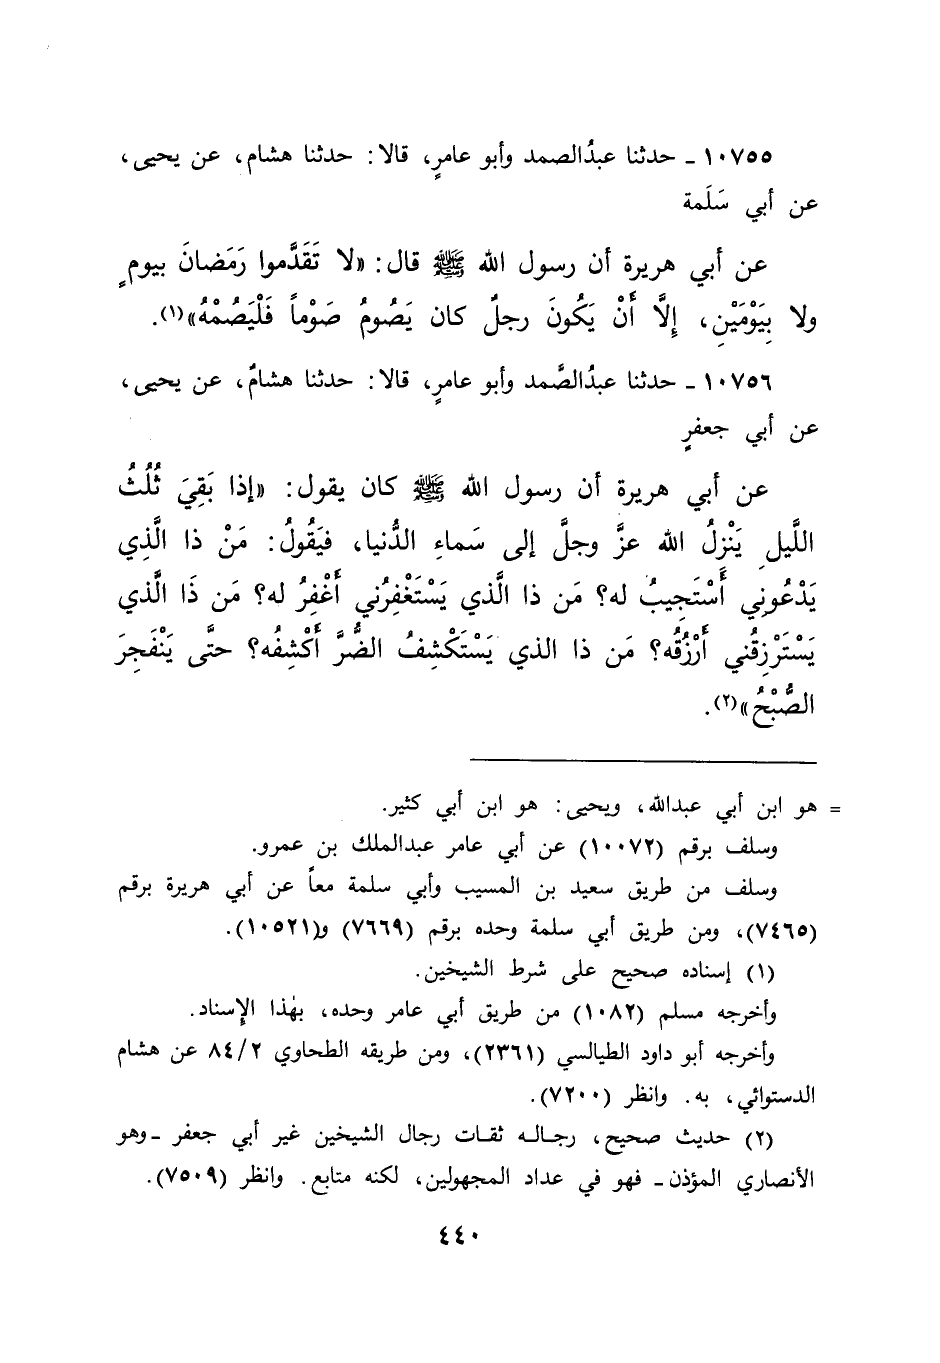 ١٠٧٥٥ ـ حدثنا عبدُالصمد وأبو عامرٍ، قالا: حدثنا هشام، عن يحيى،
عن أبي سَلَمة
عن أبي هريرة أن رسول الله ﷺ قال: «لا تَقَدَّموا رَمَضانَ بيومٍ
ولا بِيَوْمَيْنِ، إِلَّا أَنْ يَكُونَ رجلٌ كان يَصُومُ صَوْماً فَلْيَصُمْهُ»(١).
١٠٧٥٦ ـ حدثنا عبدُالصَّمد وأبو عامرٍ، قالا: حدثنا هشامٌ، عن يحيى،
عن أبي جعفرٍ
عن أبي هريرة أن رسول الله ﷺ كان يقول: «إذا بَقِيَ ثُلُثُ
اللَّيلِ يَنْزِلُ الله عزَّ وجلَّ إلى سَماءِ الدُّنيا، فيَقُولُ: مَنْ ذا الَّذِي
يَدْعُونِي أَسْتَجِيبُ له؟ مَن ذا الَّذي يَسْتَغْفِرُني أَغْفِرُ له؟ مَن ذَا الَّذي
يَسْتَرْزِقُني أَرْزُقُه؟ مَن ذا الذي يَسْتَكْشِفُ الضُّرَّ أَكْشِفُه؟ حتَّى يَنْفَجِرَ
الصُّبْحُ»(٢).
= هو ابن أبي عبدالله، ويحيى: هو ابن أبي كثير.
وسلف برقم (١٠٠٧٢) عن أبي عامر عبدالملك بن عمرو.
وسلف من طريق سعيد بن المسيب وأبي سلمة معاً عن أبي هريرة برقم
(٧٤٦٥)، ومن طريق أبي سلمة وحده برقم (٧٦٦٩) و(١٠٥٢١).
(١) إسناده صحيح على شرط الشيخين.
وأخرجه مسلم (١٠٨٢) من طريق أبي عامر وحده، بهٰذا الإسناد.
وأخرجه أبو داود الطيالسي (٢٣٦١)، ومن طريقه الطحاوي ٨٤/٢ عن هشام
الدستوائي، به. وانظر (٧٢٠٠).
(٢) حديث صحيح، رجاله ثقات رجال الشيخين غير أبي جعفر ـ وهو
الأنصاري المؤذن ـ فهو في عداد المجهولين، لكنه متابع. وانظر (٧٥٠٩).
٤٤٠